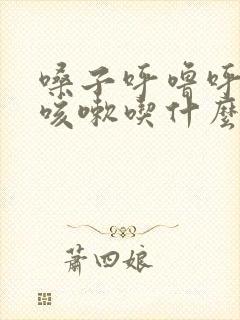 嗓子呼噜呼
咳嗽喫什麼
蕭四娘